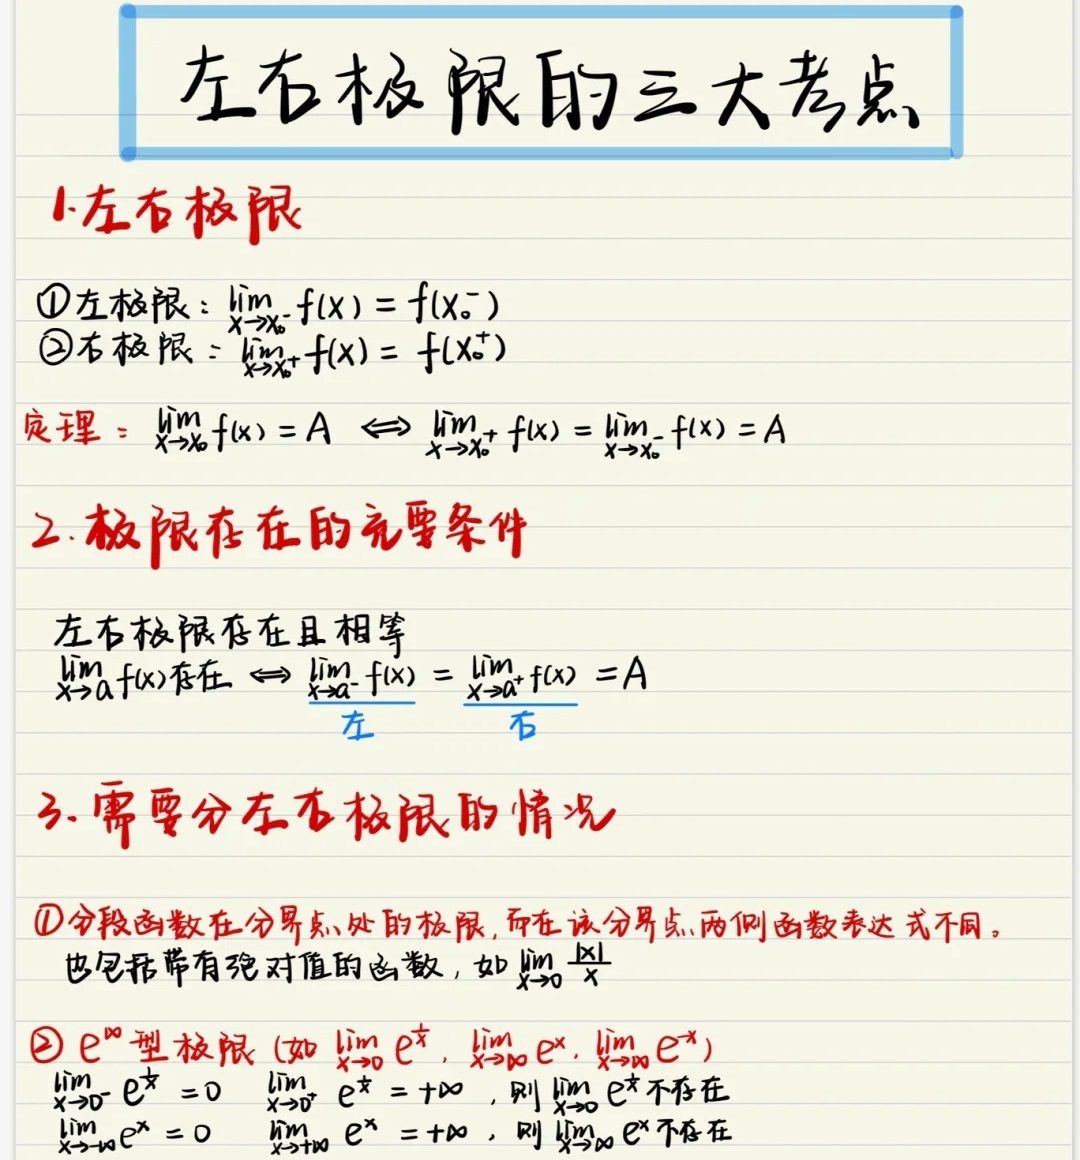 左右极限的三大考点
1.左右极限
①左极限：lim x→x₀⁻ f(x) = f(x₀⁻)
②右极限：lim x→x₀⁺ f(x) = f(x₀⁺)
定理：lim x→x₀ f(x) = A ⟺ lim x→x₀⁺ f(x) = lim x→x₀⁻ f(x) = A
2.极限存在的充要条件
左右极限存在且相等
lim x→a f(x)存在 ⟺ lim x→a⁻ f(x) = lim x→a⁺ f(x) = A
左 右
3.需要分左右极限的情况
①分段函数在分界点处的极限,而在该分界点两侧函数表达式不同。
也包括带有绝对值的函数，如 lim x→0 |x|/x
② e^∞型极限（如 lim x→0 e^(1/x), lim x→∞ e^x, lim x→∞ e^(-x)）
lim x→0⁻ e^(1/x) = 0 lim x→0⁺ e^(1/x) = +∞，则 lim x→0 e^(1/x) 不存在
lim x→-∞ e^x = 0 lim x→+∞ e^x = +∞，则 lim x→∞ e^x 不存在